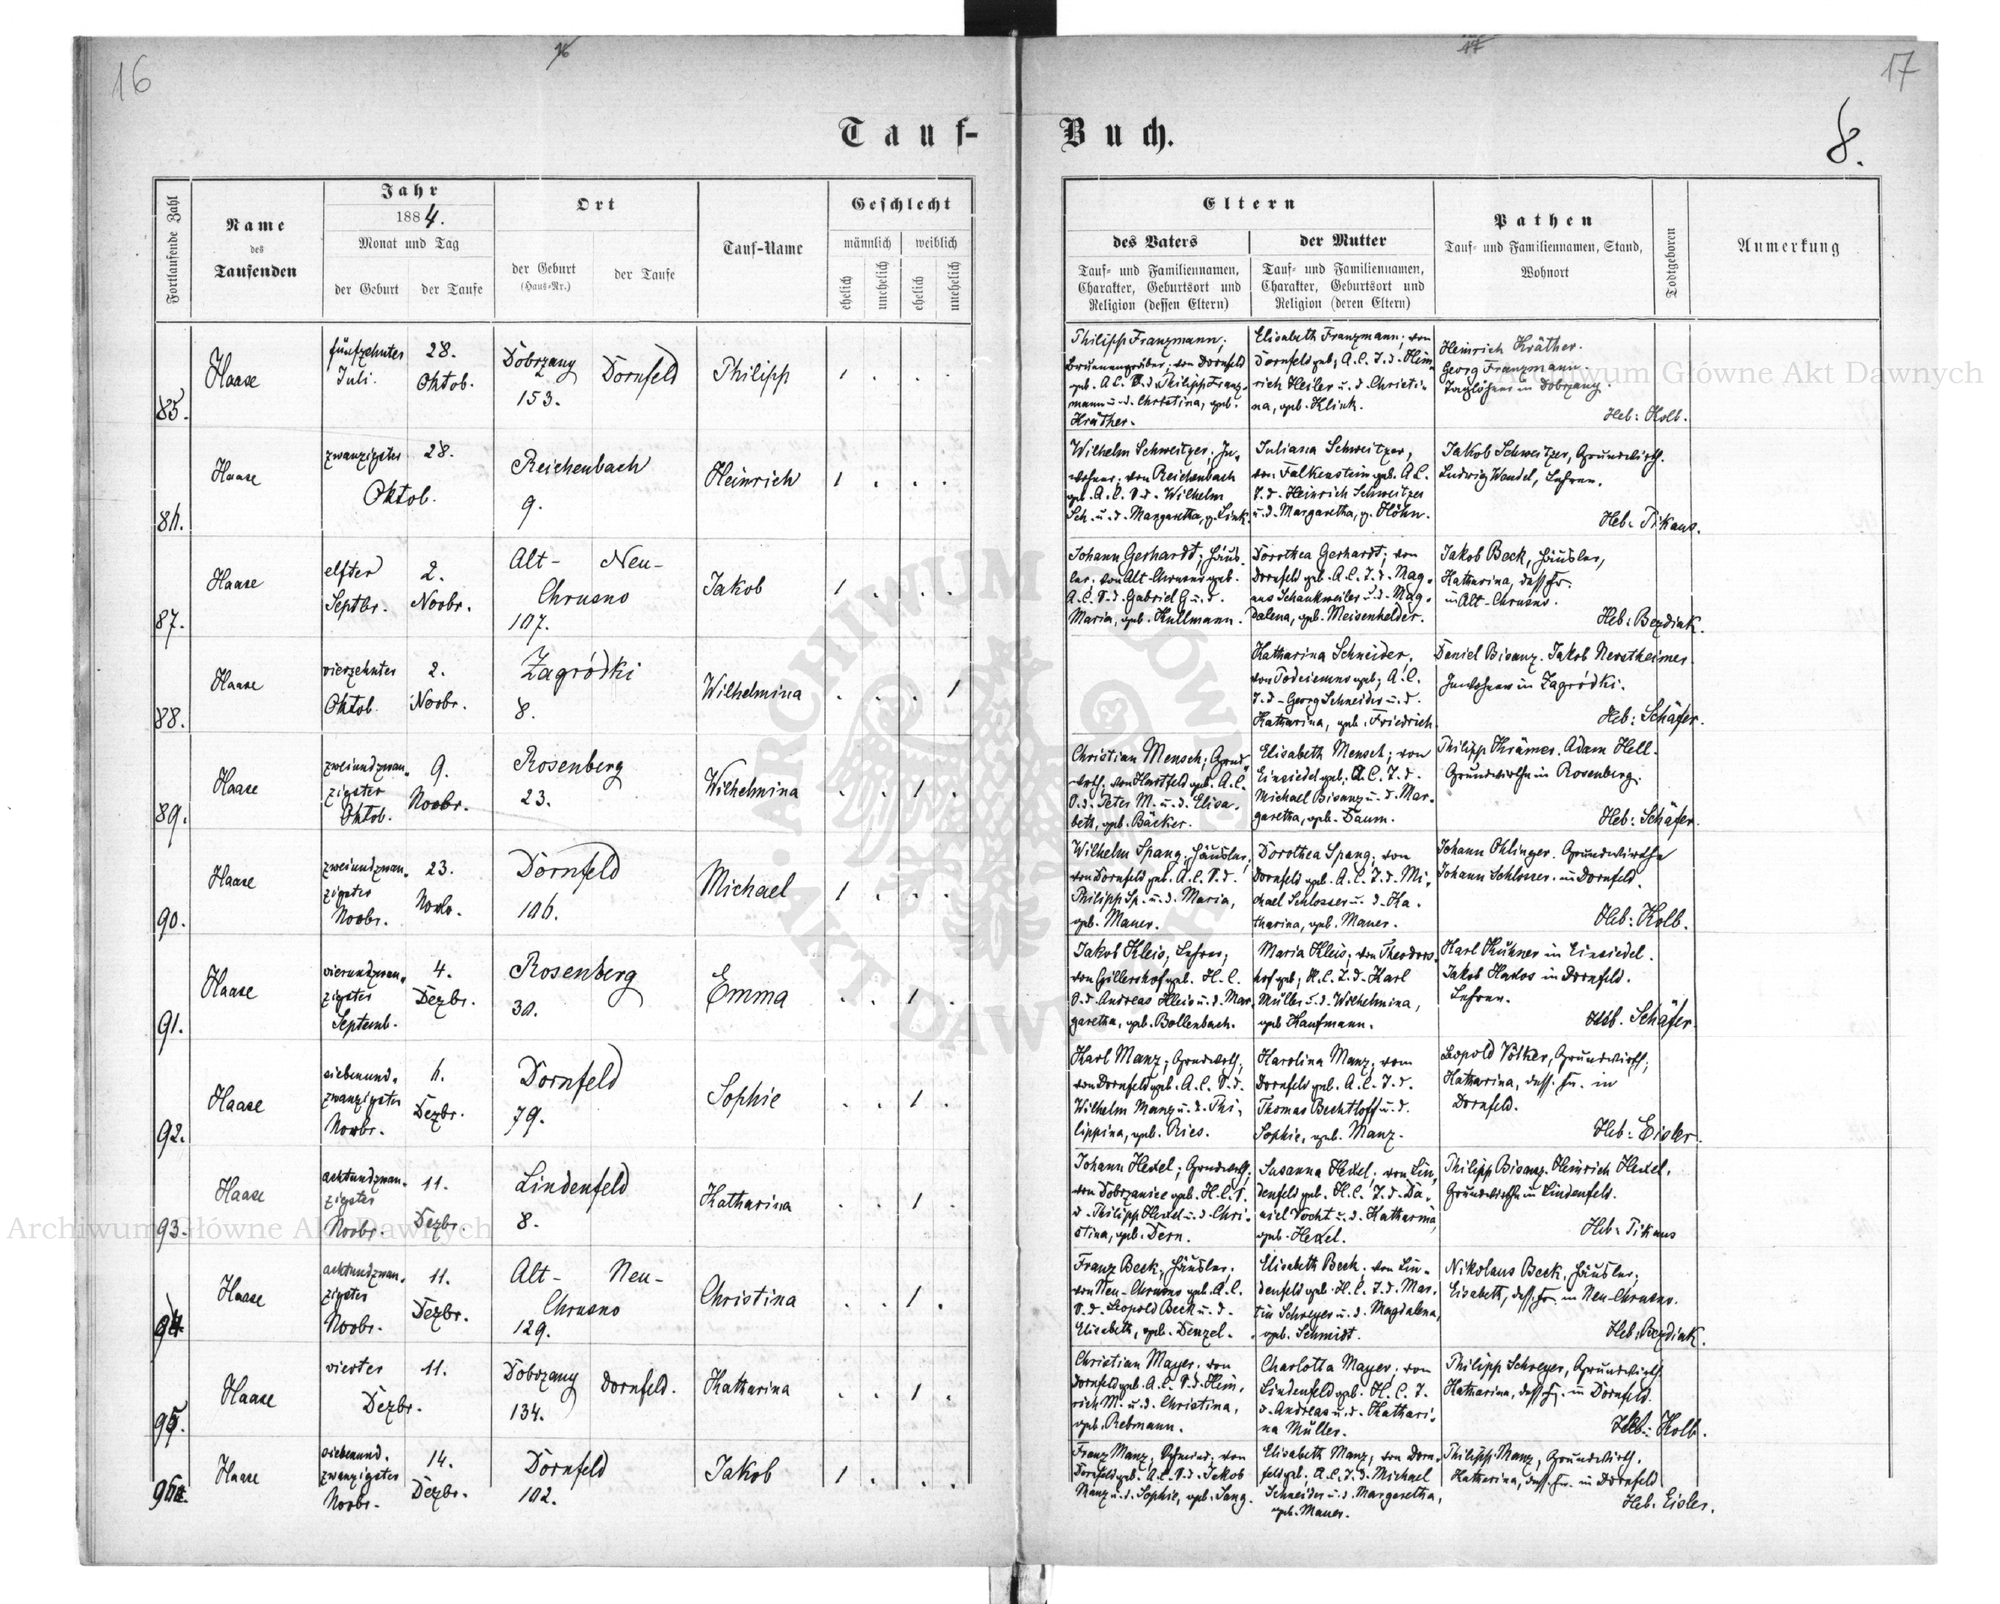 16
16
17
17
Tauf-
Buch.
8.
Fortlaufende Zahl
Name
des
Taufenden
Jahr
1884.
Monat und Tag
der Geburt
der Taufe
Ort
der Geburt
(Haus-Nr.)
der Taufe
Tauf-Name
Geschlecht
männlich
weiblich
ehelich
unehelich
ehelich
unehelich
Eltern
des Vaters
Tauf- und Familiennamen,
Charakter, Geburtsort und
Religion (dessen Eltern)
der Mutter
Tauf- und Familiennamen,
Charakter, Geburtsort und
Religion (deren Eltern)
Pathen
Tauf- und Familiennamen, Stand,
Wohnort
Todtgeboren
Anmerkung
85.
Haase
fünfzehnter
Juli.
28.
Oktob.
Dobrzany
153.
Dornfeld
Philipp
1 . . .
Philipp Franzmann;
Brunnengräber; von Dornfeld
geb. A.C. S.d. Philipp Franz-
mann u. d. Christina, geb.
Kräther.
Elisabeth Franzmann; von
Dornfeld geb; A.C. T.d. Hein-
rich Heiler u. d. Christi-
na, geb. Klink.
Heinrich Kräther.
Georg Franzmann
Taglöhner in Dobrzany.
Heb: Kolb.
86.
Haase
zwanzigster
28.
Oktob.
Reichenbach
9.
Heinrich
1 . . .
Wilhelm Schweitzer. In-
wohner. von Reichenbach
geb. A.C. S.d. Wilhelm
Sch. u. d. Margaretha, g. Link.
Juliana Schweitzer,
von Falkenstein geb. A.C.
T.d. Heinrich Schweitzer
u. d. Margaretha, g. Höhn.
Jakob Schweitzer, Grundwirth.
Ludwig Wandel, Lehrer.
Heb: Tikaus.
87.
Haase
elfter
Septbr.
2.
Novbr.
Alt- Neu-
Chrusno
107.
Jakob
1 . . .
Johann Gerhardt; Häus-
ler. von Alt-Chrusno geb.
A.C. S.d. Gabriel G. u. d.
Maria, geb. Kullmann.
Dorothea Gerhardt; von
Dornfeld geb. A.C. T.d. Mag-
nus Schankweiler u. d. Mag-
dalena, geb. Meisenhelder.
Jakob Beck, Häusler,
Katharina, dess. Fr.
in Alt-Chrusno.
Heb: Bezdiak.
88.
Haase
vierzehnter
Oktob.
2.
Novbr.
Zagródki
8.
Wilhelmina
. . . 1
Katharina Schneider,
geb; A.C.
T.d. Georg Schneider u. d.
Katharina, geb. Friedrich.
Daniel Bisanz. Jakob Nerstheimer.
Inwohner in Zagródki.
Heb: Schäfer.
89.
Haase
zweiundzwan-
zigster
Oktob.
9.
Novbr.
Rosenberg
23.
Wilhelmina
. . 1 .
Christian Mensch; Grund-
wirth; von Hartfeld geb. A.C.
S.d. Peter M. u. d. Elisa-
beth, geb. Bäcker.
Elisabeth Mensch; von
Einsiedel geb. A.C. T.d.
Michael Bisanz u. d. Mar-
garetha, geb. Daum.
Philipp Krämer. Adam Hell.
Grundwirthe in Rosenberg.
Heb: Schäfer.
90.
Haase
zweiundzwan-
zigster
Novbr.
23.
Novbr.
Dornfeld
106.
Michael
1 . . .
Wilhelm Spang; Häusler;
von Dornfeld geb. A.C. S.d.
Philipp Sp. u. d. Maria,
geb. Mauer.
Dorothea Spang; von
Dornfeld geb. A.C. T.d. Mi-
chael Schlosser u. d. Ka-
tharina, geb. Mauer.
Johann Ohlinger. Grundwirthe
Johann Schlosser. in Dornfeld.
Heb: Kolb.
91.
Haase
vierundzwan-
zigster
Septemb.
4.
Dezbr.
Rosenberg
30.
Emma
. . 1 .
Jakob Kleis; Lehrer;
von Gillershof geb. H.C.
S.d. Andreas Kleis u. d. Mar-
garetha, geb. Bollenbach.
Maria Kleis; von Theodors-
hof geb; H.C. T.d. Karl
Müller u. d. Wilhelmina,
geb. Kaufmann.
Karl Kühner in Einsiedel.
Jakob in Dornfeld.
Lehrer.
Heb. Schäfer.
92.
Haase
siebenund-
zwanzigster
Novbr.
6.
Dezbr.
Dornfeld
79.
Sophie
. . 1 .
Karl Manz; Grundwirth;
von Dornfeld geb. A.C. S.d.
Wilhelm Manz u. d. Phi-
lippina, geb. Ries.
Karolina Manz; von
Dornfeld geb. A.C. T.d.
Thomas Bechtloff u. d.
Sophie, geb. Manz.
Leopold Völker, Grundwirth;
Katharina, dess. Fr. in
Dornfeld.
Heb: Eisler.
93.
Haase
achtundzwan-
zigster
Novbr.
11.
Dezbr.
Lindenfeld
8.
Katharina
. . 1 .
Johann Hexel; Grundwirth;
von Dobrzanice geb. H.C. S.
d. Philipp Hexel u. d. Chri-
stina, geb. Dern.
Susanna Hexel. von Lin-
denfeld geb. H.C. T.d. Da-
niel Vocht u. d. Katharina,
geb. Hexel.
Philipp Bisanz. Heinrich Hexel.
Grundwirthe in Lindenfeld.
Heb: Tikaus
94.
Haase
achtundzwan-
zigster
Novbr.
11.
Dezbr.
Alt- Neu-
Chrusno
129.
Christina
. . 1 .
Franz Beck; Häusler.
von Neu-Chrusno geb. A.C.
S.d. Leopold Beck u. d.
Elisabeth, geb. Denzel.
Elisabeth Beck. von Lin-
denfeld geb. H.C. T.d. Mar-
tin Schreyer u. d. Magdalena,
geb. Schmidt.
Nikolaus Beck, Häusler;
Elisabeth, dess. Fr. in Neu-Chrusno.
Heb: Bezdiak.
95.
Haase
vierter
11.
Dezbr.
Dobrzany
134.
Dornfeld.
Katharina
. . 1 .
Christian Mayer. von
Dornfeld geb. A.C. S.d. Hein-
rich M. u. d. Christina,
geb. Rebmann.
Charlotta Mayer; von
Lindenfeld geb. H.C. T.
d. Andreas u. d. Kathari-
na Müller.
Philipp Schreyer, Grundwirth.
Katharina, dess. Fr. in Dornfeld.
Heb: Kolb.
96.
Haase
siebenund-
zwanzigster
Novbr.
14.
Dezbr.
Dornfeld
102.
Jakob
1 . . .
Franz Manz, Schmied; von
Dornfeld geb. A.C. S.d. Jakob
Manz u. d. Sophie, geb. Lang.
Elisabeth Manz; von Dorn-
feld geb. A.C. T.d. Michael
Schneider u. d. Margaretha,
geb. Mauer.
Philipp Manz, Grundwirth.
Katharina, dess. Fr. in Dornfeld.
Heb: Eisler.
Archiwum Główne Akt Dawnych
Archiwum Główne Akt Dawnych
ARCHIWUM GŁÓWNE AKT DAWNYCH